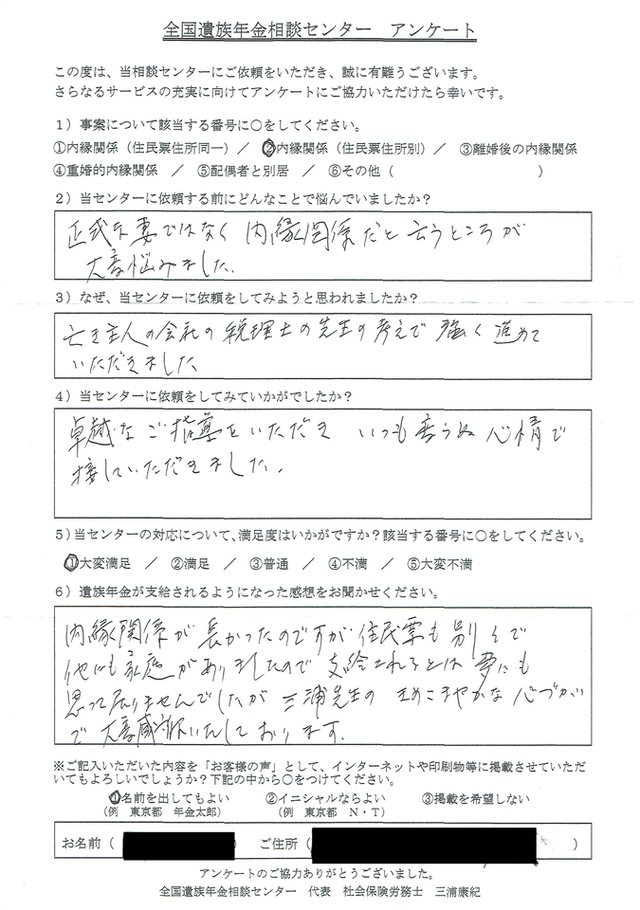 全国遺族年金相談センター　アンケート
この度は、当相談センターにご依頼をいただき、誠に有難うございます。
さらなるサービスの充実に向けてアンケートにご協力いただけたら幸いです。
1）事案について該当する番号に○をしてください。
①内縁関係（住民票住所同一）／　②内縁関係（住民票住所別）／　③離婚後の内縁関係
④重婚的内縁関係　／　⑤配偶者と別居　／　⑥その他（　　　　　　　　　）
2）当センターに依頼する前にどんなことで悩んでいましたか？
正式な妻ではなく 内縁関係だと云うところが
大変悩みました.
3）なぜ、当センターに依頼をしてみようと思われましたか？
亡き主人の会社の税理士の先生の考えで 強く進めて
いただきました
4）当センターに依頼をしてみていかがでしたか？
卓越なご指導をいただき いつも変らぬ心情で
接していただきました.
5）当センターの対応について、満足度はいかがですか？該当する番号に○をしてください。
①大変満足　／　②満足　／　③普通　／　④不満　／　⑤大変不満
6）遺族年金が支給されるようになった感想をお聞かせください。
内縁関係が長かったのですが住民票も別々で
他にも家庭がありましたので 支給されるとは 夢にも
思って居りませんでしたが 三浦先生の きめこまやかな心づかい
で 大変感謝いたしております.
※ご記入いただいた内容を「お客様の声」として、インターネットや印刷物等に掲載させていただ
いてもよろしいでしょうか？下記の中から○をつけてください。
①名前を出してもよい　②イニシャルならよい　③掲載を希望しない
（例　東京都　年金太郎）　（例　東京都　N・T）
お名前（　　　　　）　ご住所（　　　　　　　　　　）
アンケートのご協力ありがとうございました。
全国遺族年金相談センター　代表　社会保険労務士　三浦康紀